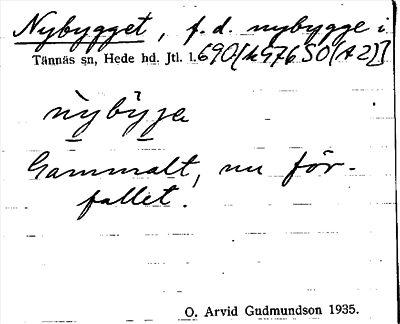 Nybygget, f.d. nybygge i
Tännäs sn, Hede hd. Jtl. l. 690 [k 976 SO (A2)]
nỳbỳjа
Gammalt, nu för-
fallet.
O. Arvid Gudmundson 1935.